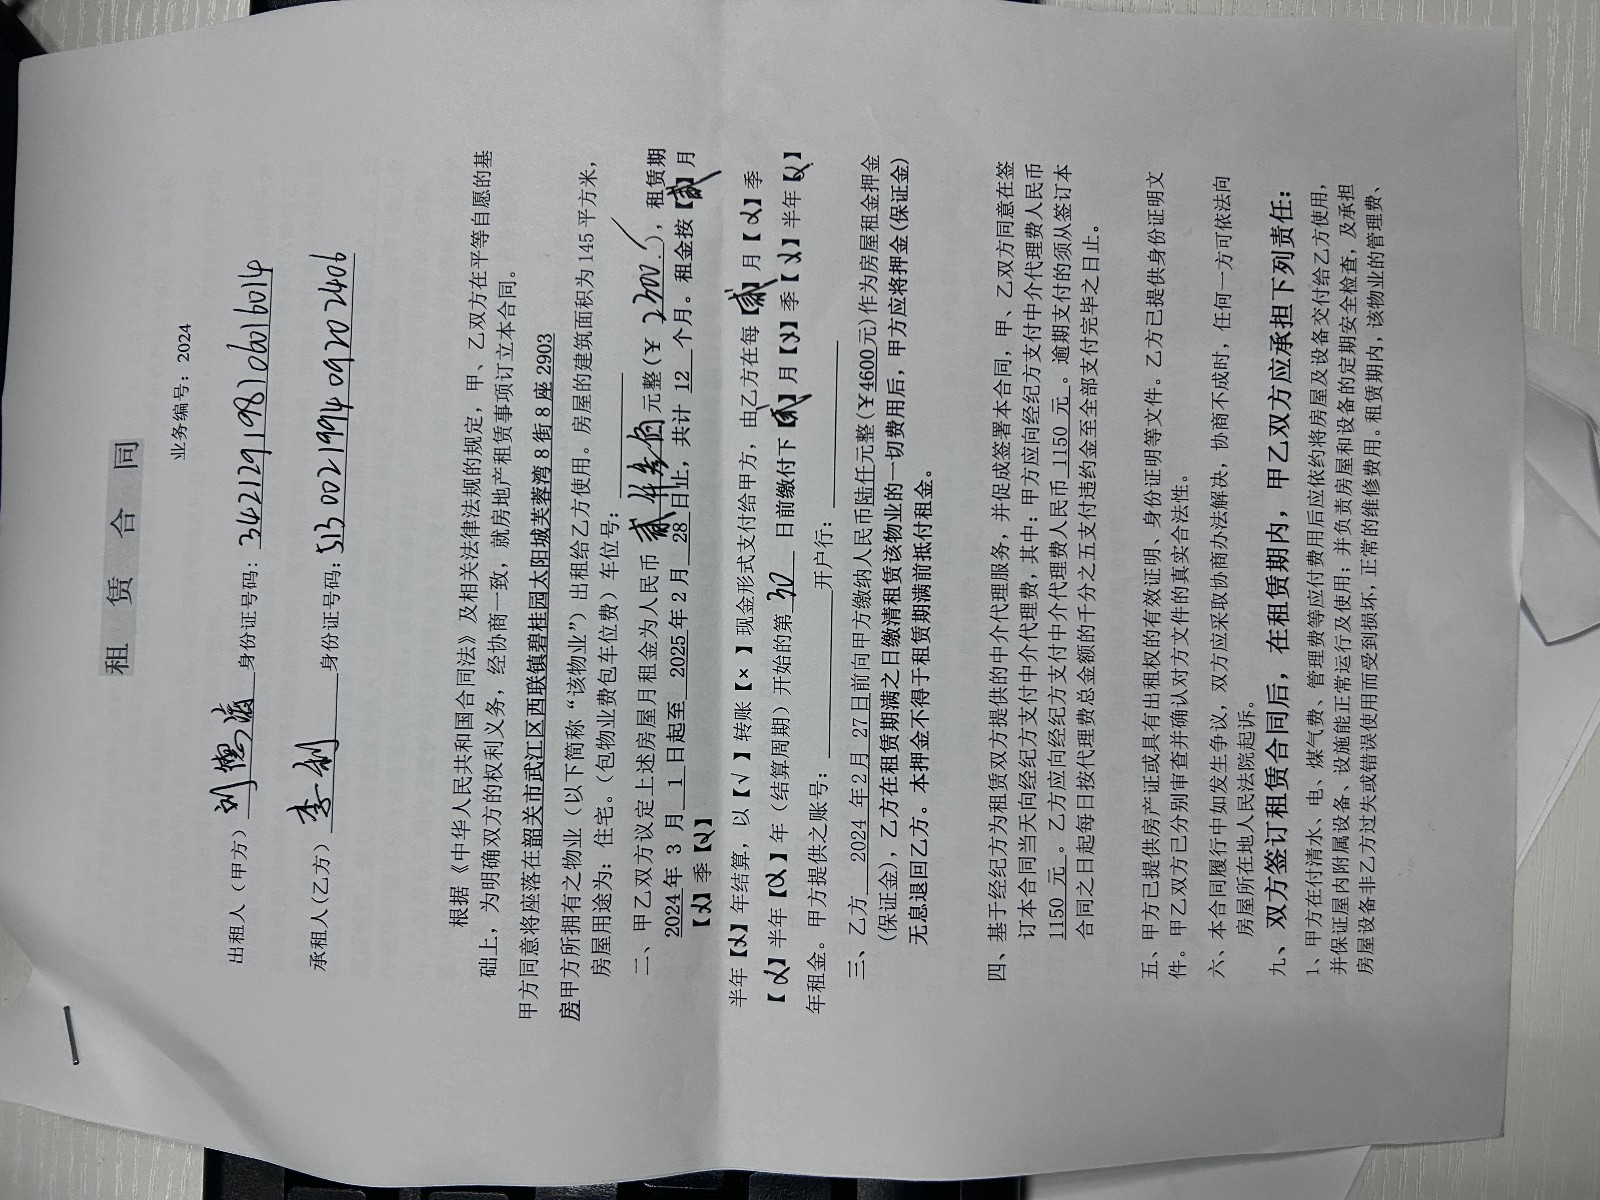 租 赁 合 同
业务编号：2024
出租人（甲方） 刘德 身份证号码：342129198106016014
承租人(乙方) 李 身份证号码：513002199409202406
根据《中华人民共和国合同法》及相关法律法规的规定，甲、乙双方在平等自愿的基
础上，为明确双方的权利义务，经协商一致，就房地产租赁事项订立本合同。
甲方同意将座落在韶关市武江区西联镇碧桂园太阳城芙蓉湾8街8座2903
房甲方所拥有之物业（以下简称“该物业”）出租给乙方使用。房屋的建筑面积为145平方米，
房屋用途为：住宅。（包物业费包车位费）车位号：
二、甲乙双方议定上述房屋月租金为人民币 贰仟叁佰 元整（￥2300.），租赁期
2024 年 3 月 1 日起至 2025 年 2 月 28 日止，共计 12 个月。租金按【贰】月
【X】季【X】
半年【X】年结算，以【√】转账【×】现金形式支付给甲方，由乙方在每【贰】月【X】季
【X】半年【X】年（结算周期）开始的第 30 日前缴付下【贰】月【X】季【X】半年【X】
年租金。甲方提供之账号： 开户行：
三、乙方 2024 年 2 月 27 日前向甲方缴纳人民币陆仟元整（￥4600 元）作为房屋租金押金
（保证金），乙方在租赁期满之日缴清租赁该物业的一切费用后，甲方应将押金(保证金)
无息退回乙方。本押金不得于租赁期满前抵付租金。
四、基于经纪方为租赁双方提供的中介代理服务，并促成签署本合同，甲、乙双方同意在签
订本合同当天向经纪方支付中介代理费，其中：甲方应向经纪方支付中介代理费人民币
1150 元 。乙方应向经纪方支付中介代理费人民币 1150 元 。逾期支付的须从签订本
合同之日起每日按代理费总金额的千分之五支付违约金至全部支付完毕之日止。
五、甲方已提供房产证或具有出租权的有效证明、身份证明等文件。乙方已提供身份证明文
件。甲乙双方已分别审查并确认对方文件的真实合法性。
六、本合同履行中如发生争议，双方应采取协商办法解决，协商不成时，任何一方可依法向
房屋所在地人民法院起诉。
九、双方签订租赁合同后，在租赁期内，甲乙双方应承担下列责任：
1、甲方在付清水、电、煤气费、管理费等应付费用后应依约将房屋及设备交付给乙方使用，
并保证屋内附属设备、设施能正常运行及使用；并负责房屋和设备的定期安全检查，及承担
房屋设备非乙方过失或错误使用而受到损坏，正常的维修费用。租赁期内，该物业的管理费、